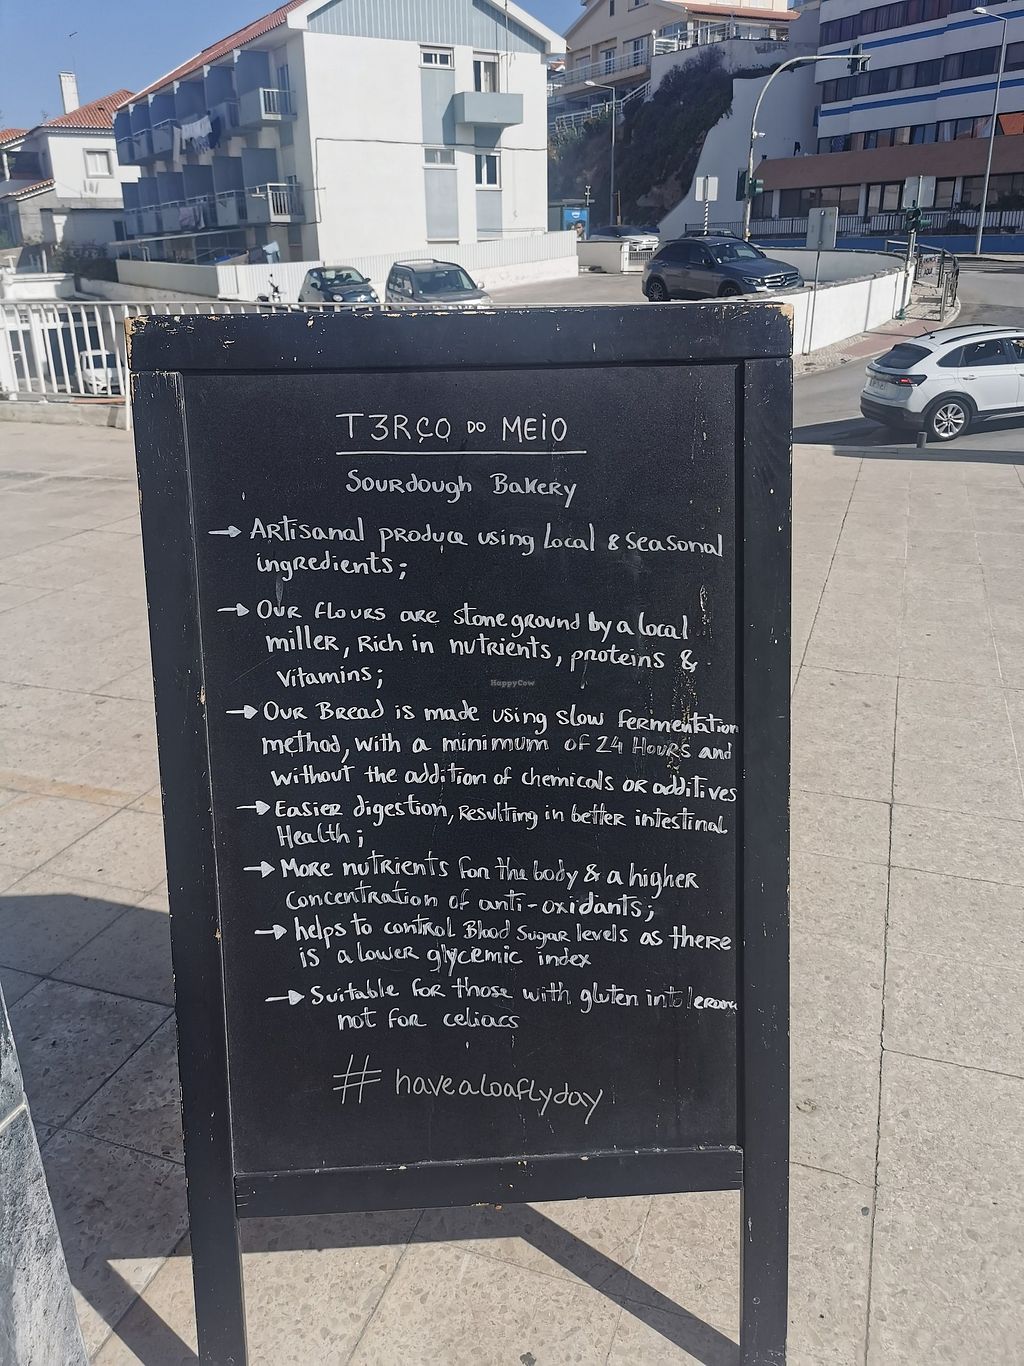 T3RÇO DO MEIO
Sourdough Bakery
→ Artisanal produce using local & seasonal
ingredients;
→ Our flours are stoneground by a local
miller, Rich in nutrients, proteins &
vitamins;
→ Our Bread is made using slow fermentation
method, with a minimum of 24 Hours and
without the addition of chemicals or additives
→ Easier digestion, Resulting in better intestinal
Health;
→ More nutrients for the body & a higher
concentration of anti-oxidants;
→ helps to control Blood Sugar levels as there
is a lower glycemic index
→ Suitable for those with gluten
not for celiacs
# havealoaflyday
HappyCow